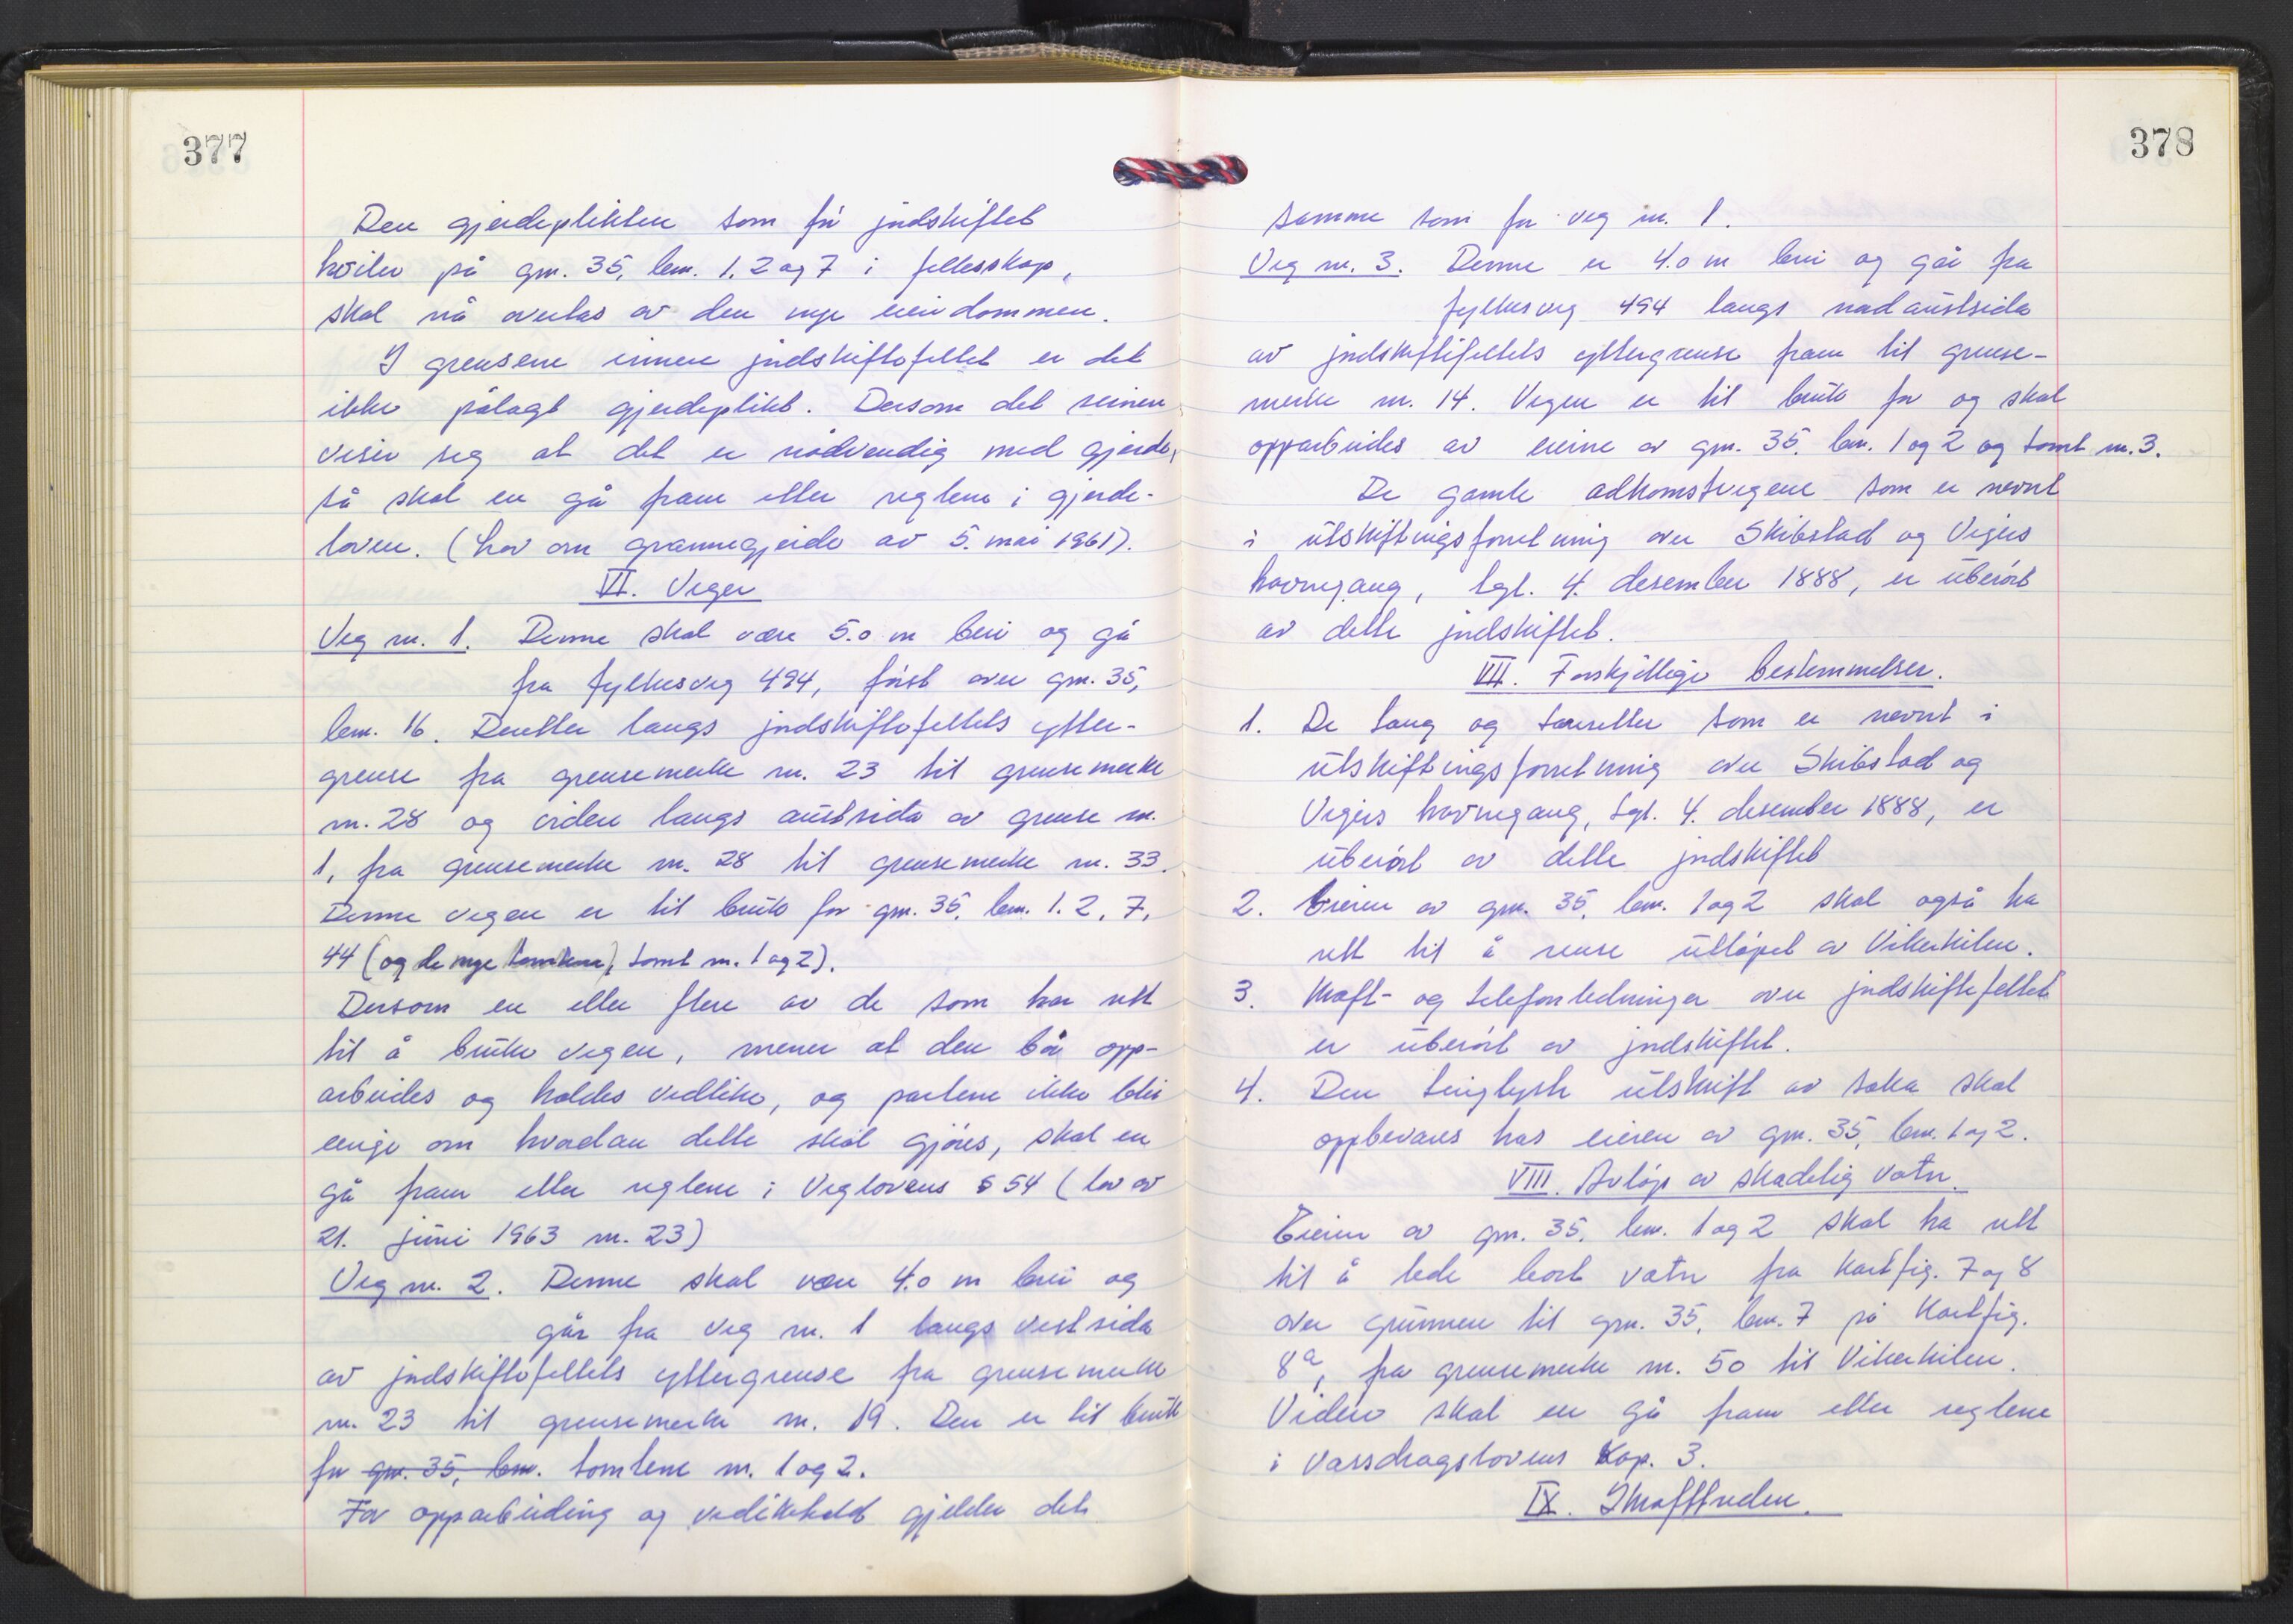 377
Den gjerdeplikten som för jordskiftet
hviler på gnr. 35, bnr. 1, 2 og 7 i fellesskap,
skal nå overtas av den nye eiendommen.
I grensene innen jordskiftefeltet er det
ikke pålagt gjerdeplikt. Dersom det seinere
viser seg at det er nödvendig med gjerde,
så skal en gå fram etter reglene i gjerde-
loven. (Lov om grannegjerde av 5. mai 1961).
VI. Veger
Veg nr. 1. Denne skal være 5.0 m brei og gå
fra fylkesveg 494, först over gnr. 35,
bnr. 16. Deretter langs jordskiftefeltets ytter-
grense fra grensemerke nr. 23 til grensemerke
nr. 28 og videre langs austsida av grense nr.
1, fra grensemerke nr. 28 til grensemerke nr. 33.
Denne vegen er til bruk for gnr. 35, bnr. 1, 2, 7,
44 (og de nye tomtene, tomt nr. 1 og 2).
Dersom en eller flere av de som har rett
til å bruke vegen, mener at den bör opp-
arbeides og holdes vedlike, og partene ikke blir
enige om hvordan dette skal gjöres, skal en
gå fram etter reglene i Veglovens § 54 (lov av
21. juni 1963 nr. 23)
Veg nr. 2. Denne skal være 4.0 m brei og
går fra veg nr. 1 langs vestsida
av jordskiftefeltets yttergrense fra grensemerke
nr. 23 til grensemerke nr. 19. Den er til bruk
for gnr. 35, bnr. tomtene nr. 1 og 2.
For opparbeiding og vedlikehold gjelder det
378
samme som for veg nr. 1.
Veg nr. 3. Denne er 4.0 m brei og går fra
fylkesveg 494 langs nordaustsida
av jordskiftefeltets yttergrense fram til grense-
merke nr. 14. Vegen er til bruk for og skal
opparbeides av eierne av gnr. 35, bnr. 1 og 2 og tomt nr. 3.
De gamle adkomstvegene som er nevnt
i utskiftningsforretning over Skibstad og Vegers
havnegang, tgl. 4. desember 1888, er uberört
av dette jordskiftet.
VII. Forskjellige bestemmelser.
1. De tang og tareretter som er nevnt i
utskiftingsforretning over Skibstad og
Vegers havnegang, tgl. 4. desember 1888, er
uberört av dette jordskiftet
2. Eieren av gnr. 35, bnr. 1 og 2 skal også ha
rett til å rense utlöpet av Vikerkilen.
3. Kraft- og telefonledninger over jordskiftefeltet
er uberört av jordskiftet.
4. Den tinglyste utskrift av saka skal
oppbevares hos eieren av gnr. 35, bnr. 1 og 2.
VIII. Avlöp av skadelig vatn.
Eieren av gnr. 35, bnr. 1 og 2 skal ha rett
til å lede bort vatn fra kartfig. 7 og 8
over grunnen til gnr. 35, bnr. 7 på kartfig.
8a, fra grensemerke nr. 50 til Vikerkilen.
Videre skal en gå fram etter reglene
i vassdragslovens kap. 3.
IX. Ikrafttreden.